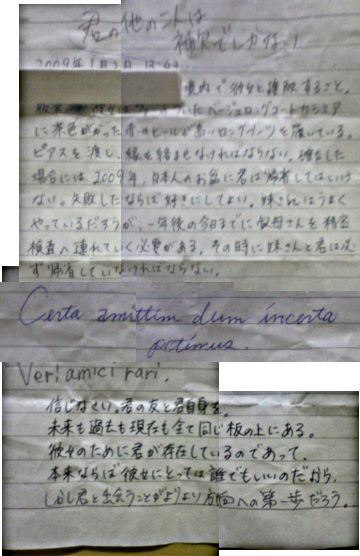 君の他の二人は
補欠でしかない
2009年1月2日
境内で彼女と接触すること。
ベージュロングコートカシミア
に茶色がかった赤のヒールが高いロングブーツを履いている。
ピアスを渡し、縁を絡ませなければならない。確立した
場合には、2009年、日本人のお盆に君は帰省してはいけ
ない。失敗したならば好きにしてよい。妹さんはうまく
やっているだろうが、一年後の今日までに叔母さんを精密
検査へ連れていく必要がある。その時に妹さんと君は必
ず帰省していなければならない。
Certa amittim dum incerta
petimus.
Veri amici rari.
信じなさい。君の友と君自身を。
未来も過去も現在も全て同じ板の上にある。
彼女のために君が存在しているのであって、
本来ならば彼女にとっては誰でもいいのだから。
しかし君と出会うことがよりよい方向への第一歩だろう。